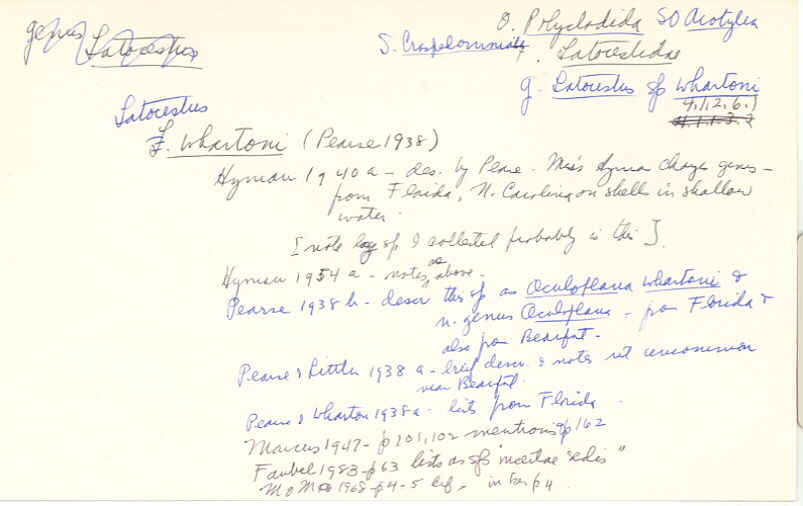 genus Latocestus
O. Polycladida SO Acotylea
S. Craspedommidae F. Latocestidae
g. Latocestus sp whartoni
4.1.2.6.1
4.1.1.3.2
Latocestus
L. whartoni (Pearse 1938)
Hyman 1940a - des. by Pearse. Miss Hyman changes genus -
from Florida, N. Carolina on shells in shallow
water.
[note sp I collected probably is this].
Hyman 1954a - notes as above.
Pearse 1938b - descr this sp as Oculoplana whartoni &
n. genus Oculoplana - from Florida &
also from Beaufort -
Pearse & Littler 1938a - brief descr. & notes not uncommon
near Beaufort.
Pearse & Wharton 1938a - lists from Florida.
Marcus 1947 - p 101, 102 mentions p 162
Faubel 1983 - p 63 lists as sp "incertae sedis"
1968 - p 4-5 in key p 4